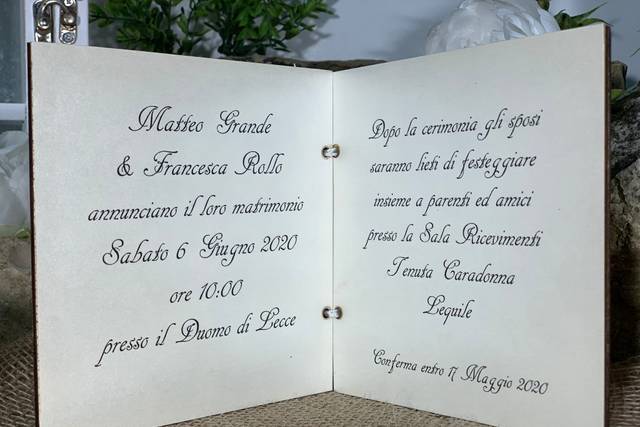 Matteo Grande
& Francesca Rollo
annunciano il loro matrimonio
Sabato 6 Giugno 2020
ore 10:00
presso il Duomo di Lecce
Dopo la cerimonia gli sposi
saranno lieti di festeggiare
insieme a parenti ed amici
presso la Sala Ricevimenti
Tenuta Caradonna
Lequile
Conferma entro 17 Maggio 2020